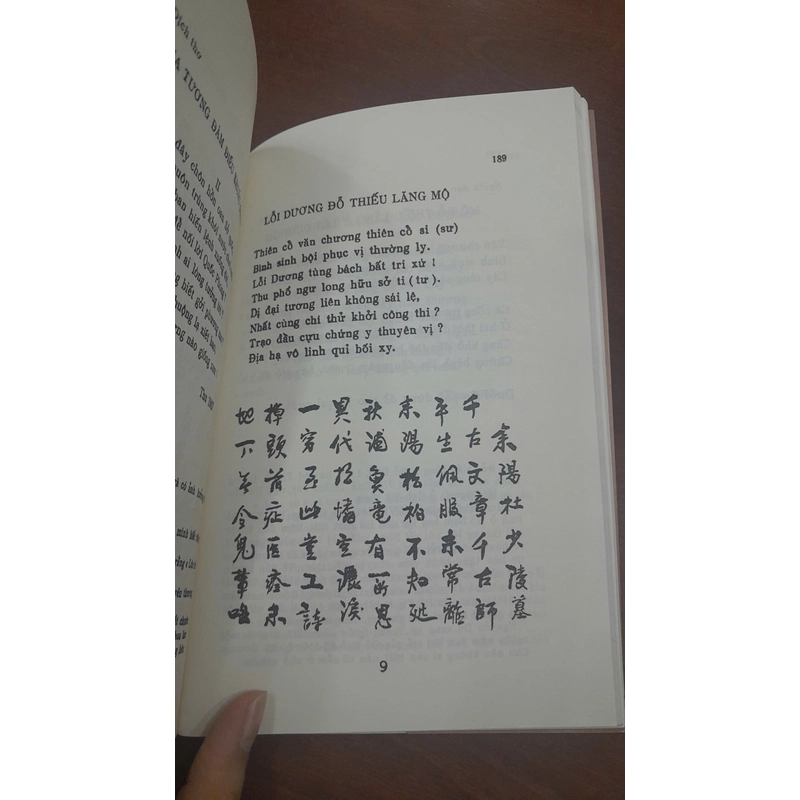 Dịch thơ
TƯƠNG ĐÀM ĐIẾU
II
đây chôn hồn
nối lời Quốc Phong
nào giống
189
LỖI DƯƠNG ĐỖ THIẾU LĂNG MỘ
Thiên cổ văn chương thiên cổ si (sư)
Bình sinh bội phục vị thường ly.
Lỗi Dương tùng bách bất tri xứ !
Thu phố ngư long hữu sở ti (tư).
Dị đại tương liên không sái lệ,
Nhất cùng chí thử khởi công thi ?
Trạo đầu cựu chứng y thuyên vị ?
Địa hạ vô linh quỉ bối xy.
耒陽杜少陵墓
千古文章千古師
平生佩服未常離
耒陽松柏不知処
秋浦魚竜有所思
異代相憐空灑淚
一窮至此豈工詩
掉頭旧症医痊未
地下無令鬼輩咍
9